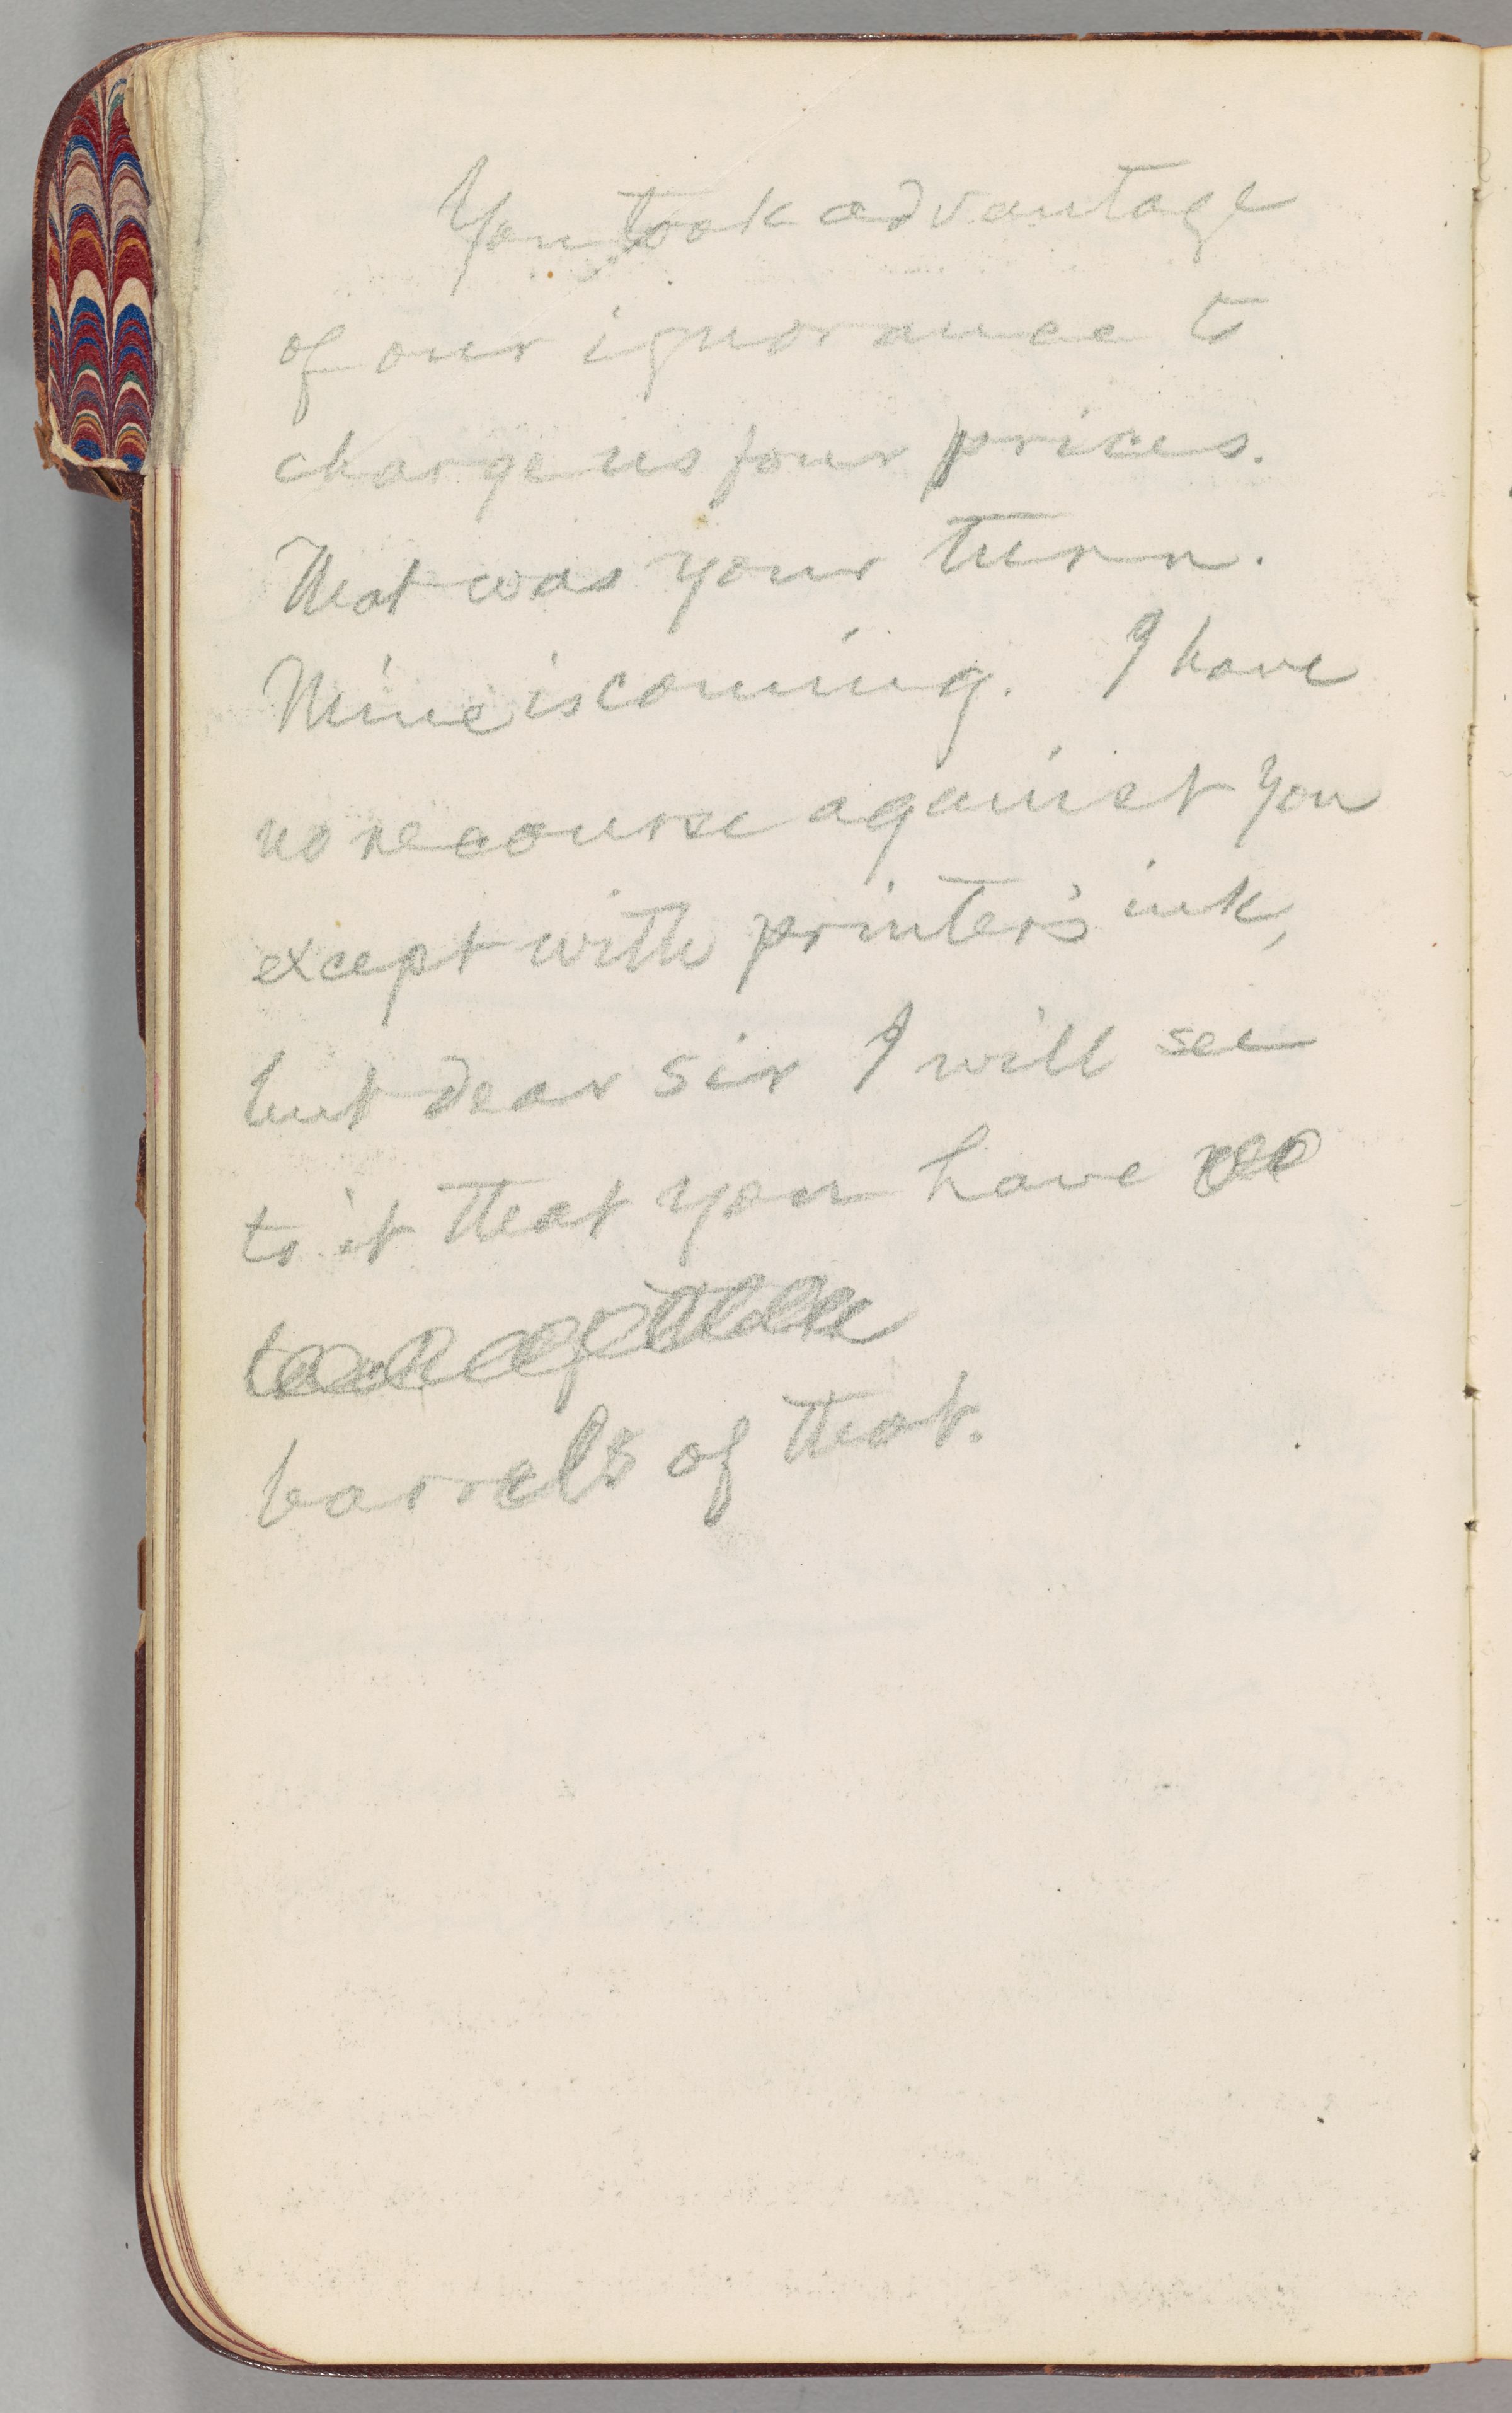 You took advantage
of our ignorance to
charge us four prices.
That was your turn.
Mine is coming. I have
no recourse against you
except with printer's ink,
but dear sir I will see
to it that you have
barrels of that.